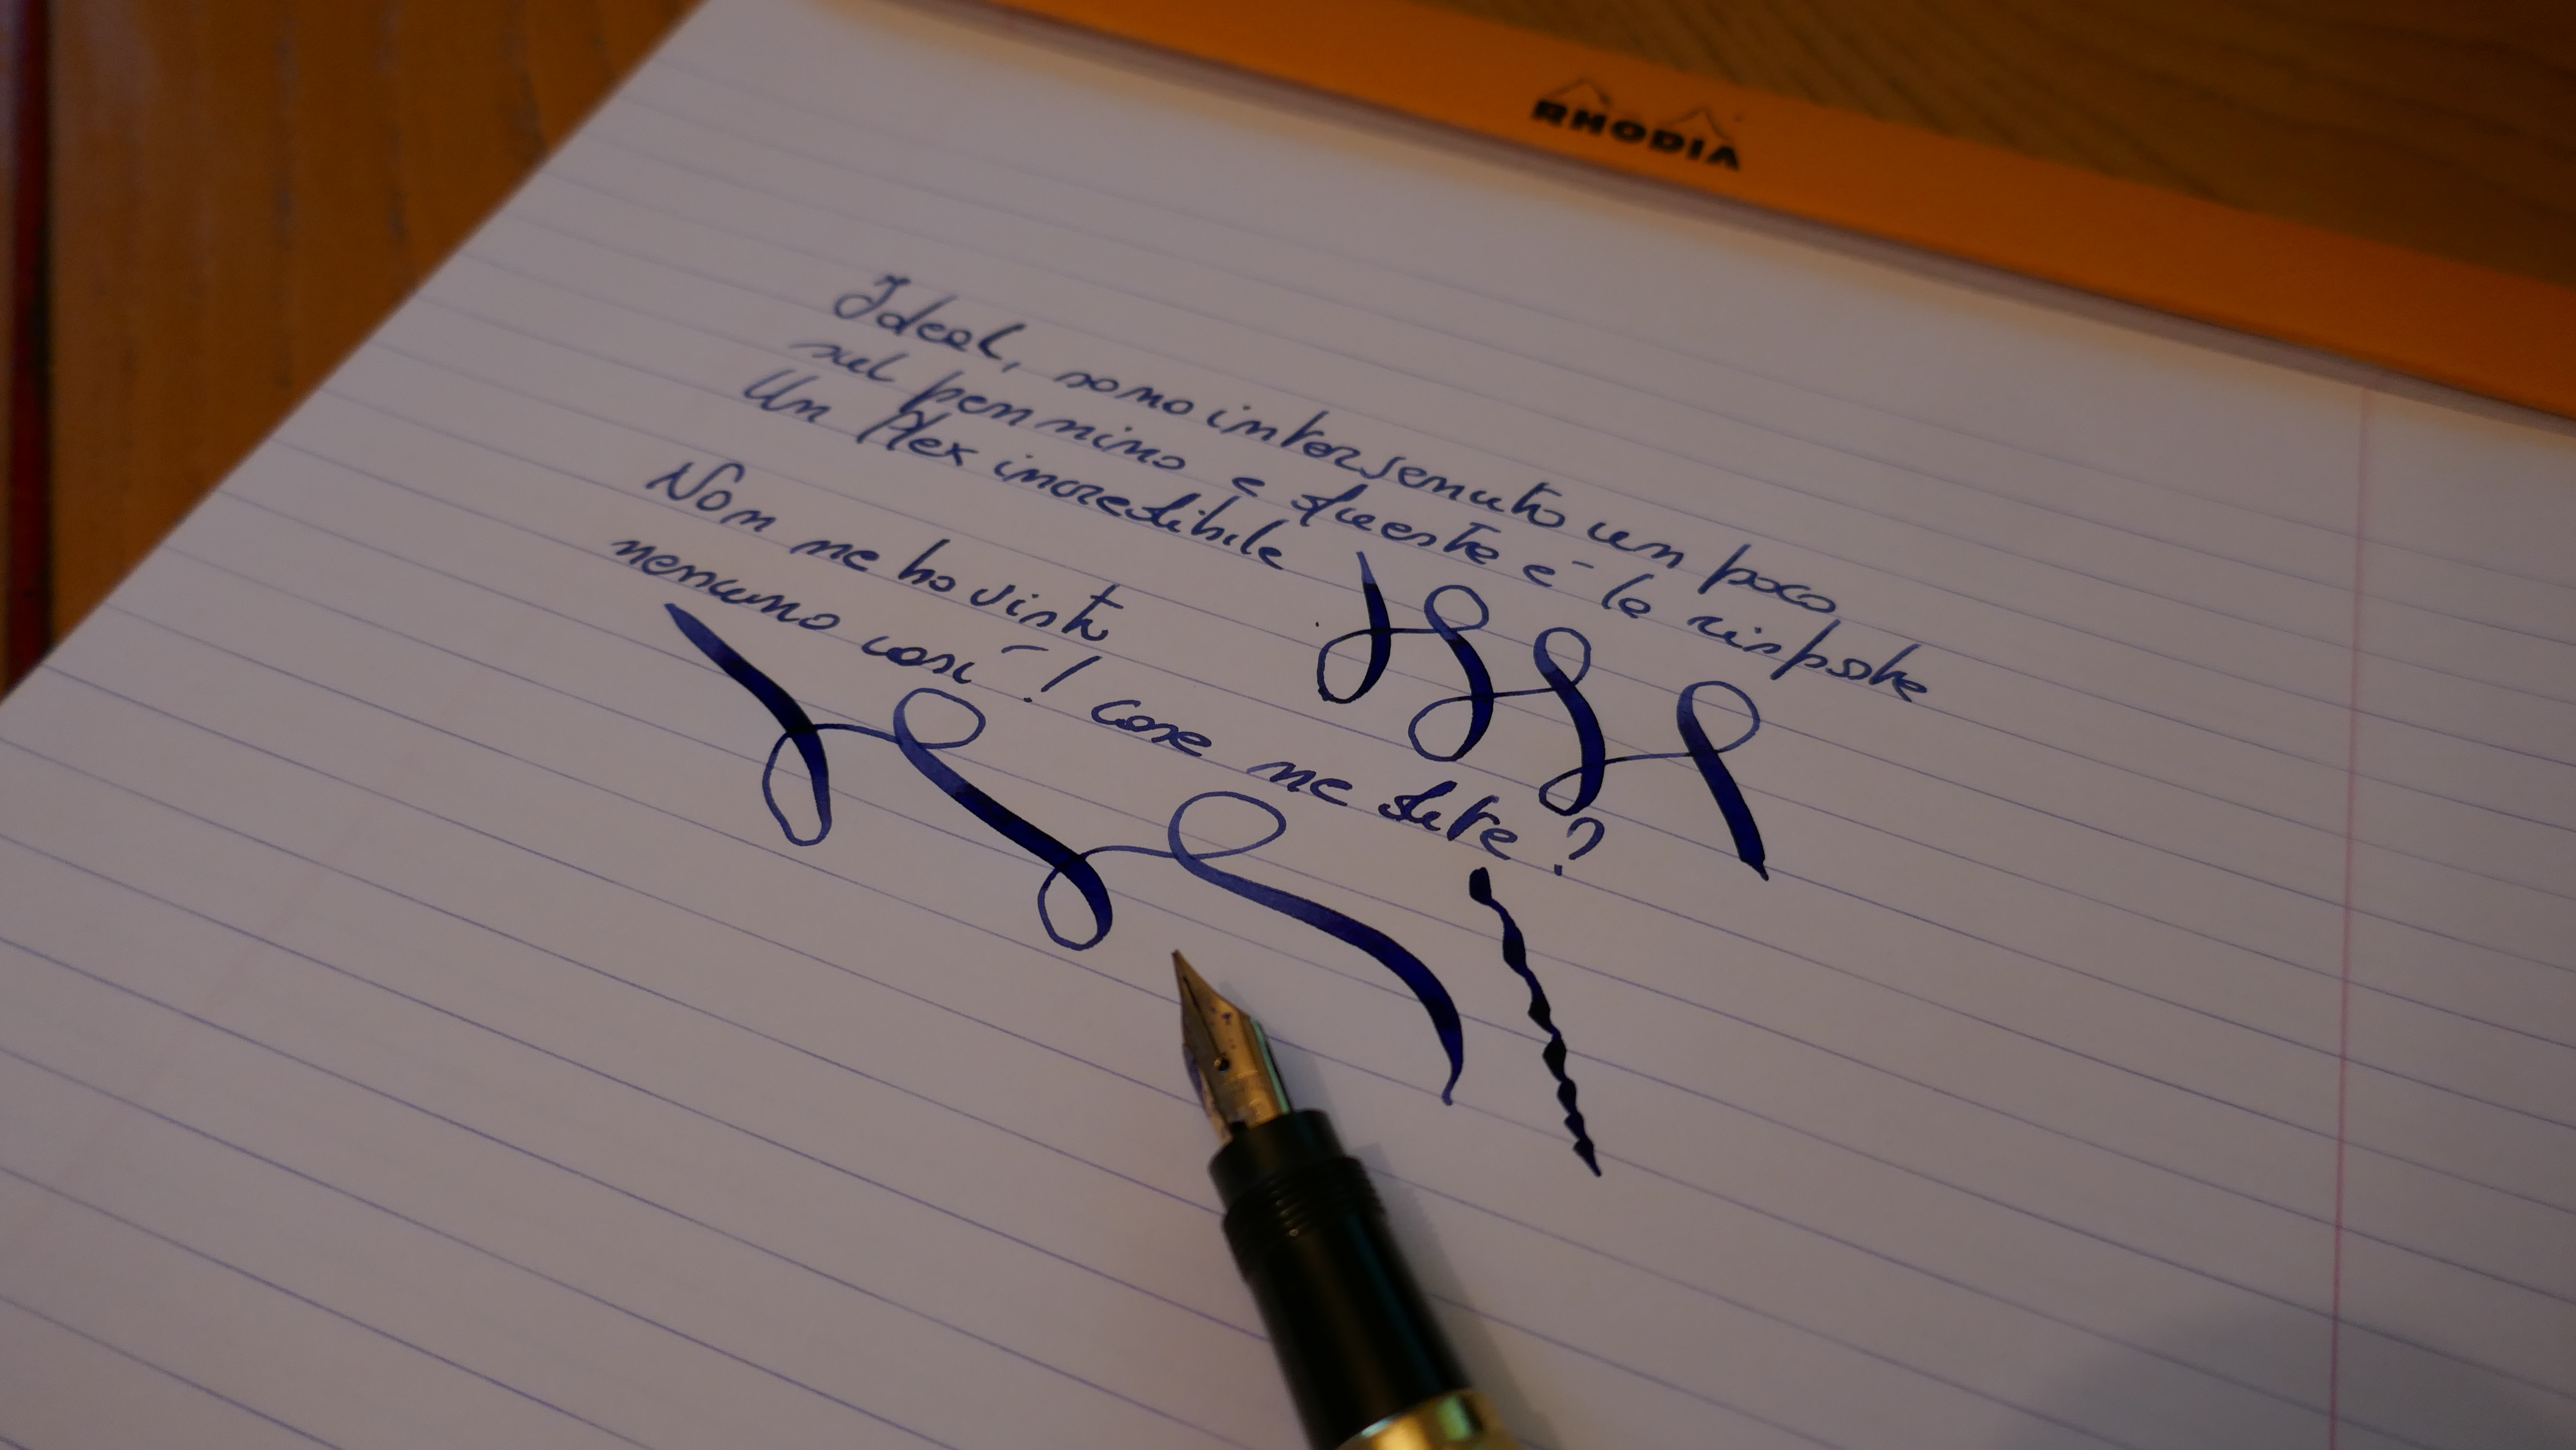 RHODIA
Ideal, sono intervenuto un poco
sul pennino e questa è la risposta
Un flex incredibile
Non ne ho visto
nessuno così! cosa ne dite?